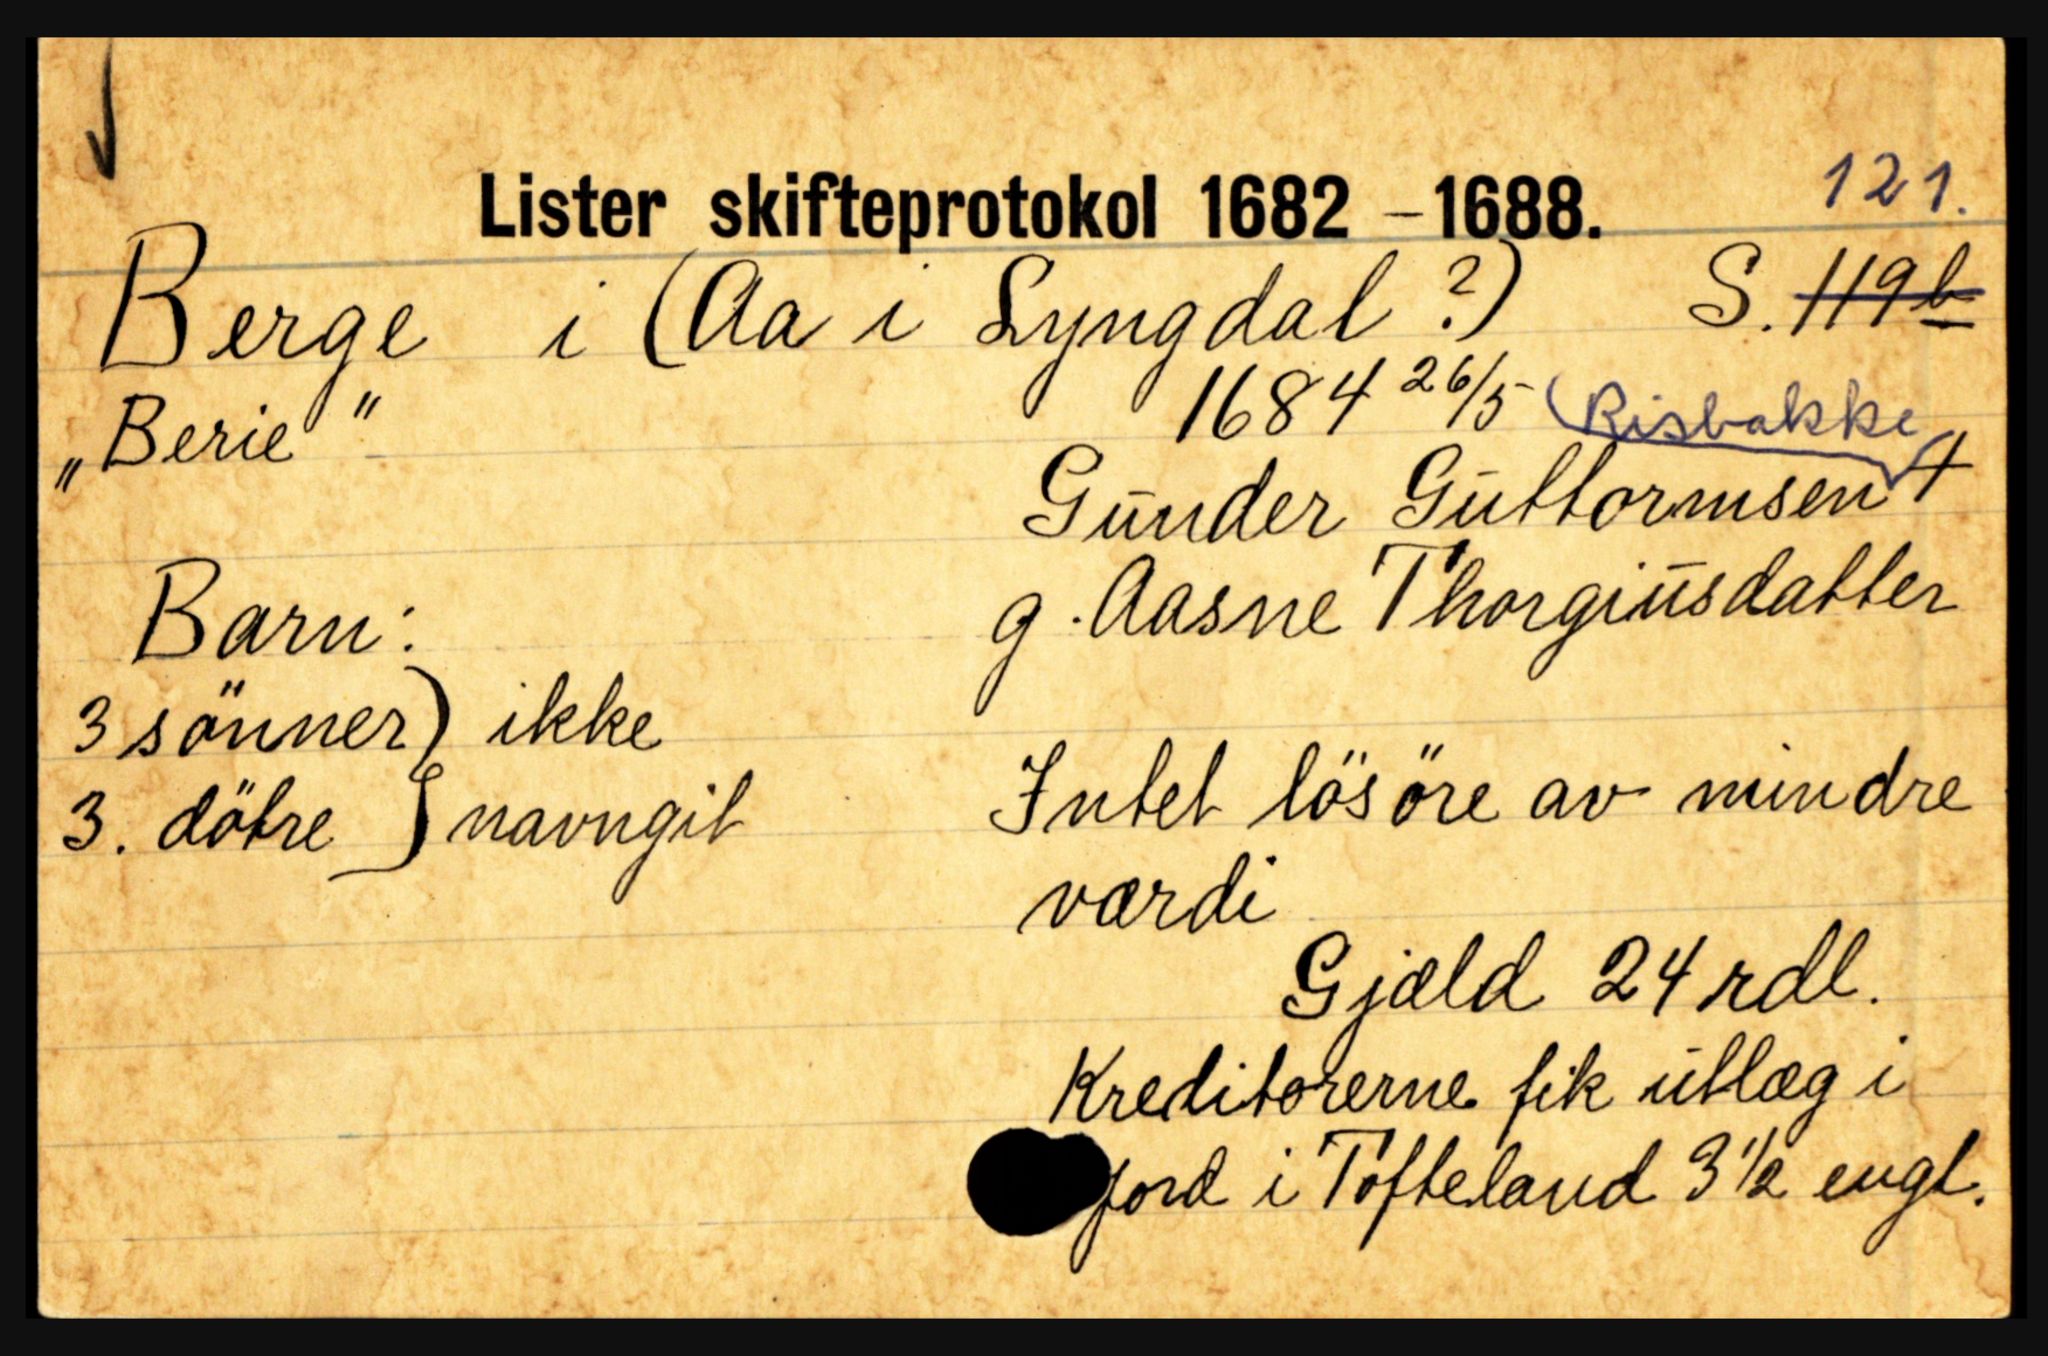 Lister skifteprotokol 1682 - 1688.
121.
Berge i (Aa i Lyngdal ?) S. 119b
"Berie"
1684 26/5 (Risbakke
Gunder Guttormsen +
g. Aasne Thorgiusdatter
Barn:
3 sönner) ikke
3. dötre } navngit
Intet lösöre av mindre
værdi
Gjæld 24 rdl.
Kreditorerne fik utlæg i
jord i Tofteland 3 1/2 engl.